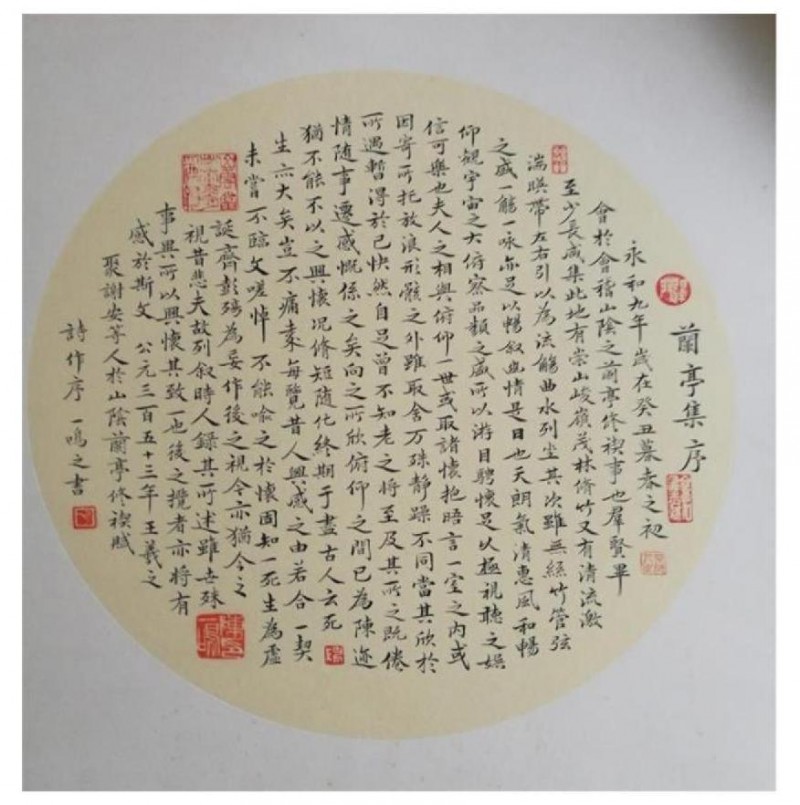 蘭亭集序
永和九年歲在癸丑暮春之初
會於會稽山陰之蘭亭修禊事也羣賢畢
至少長咸集此地有崇山峻嶺茂林脩竹又有清流激
湍暎帶左右引以為流觴曲水列坐其次雖無絲竹管弦
之盛一觴一咏亦足以暢叙幽情是日也天朗氣清惠風和暢
仰觀宇宙之大俯察品類之盛所以游目騁懷足以極視聽之娛
信可樂也夫人之相與俯仰一世或取諸懷抱晤言一室之內或
因寄所托放浪形骸之外雖取舍万殊靜躁不同當其欣於
所遇暫得於己快然自足曾不知老之將至及其所之既倦
情随事遷感慨係之矣向之所欣俯仰之間已為陳迹
猶不能不以之興懷况脩短随化終期于盡古人云死
生亦大矣豈不痛哉每覽昔人興感之由若合一契
未嘗不臨文嗟悼不能喻之於懷固知一死生為虛
誕齊彭殤為妄作後之視今亦猶今之
視昔悲夫故列叙時人録其所述雖世殊
事異所以興懷其致一也後之攬者亦將有
感於斯文 公元三百五十三年王羲之
聚謝安等人於山陰蘭亭修禊賦
詩作序 一鳴之書